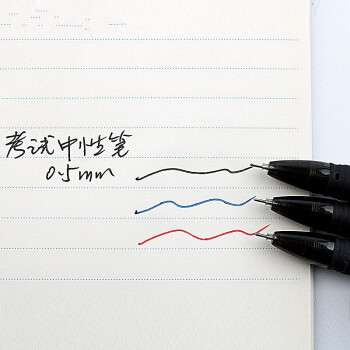 考试中性笔
0.5mm